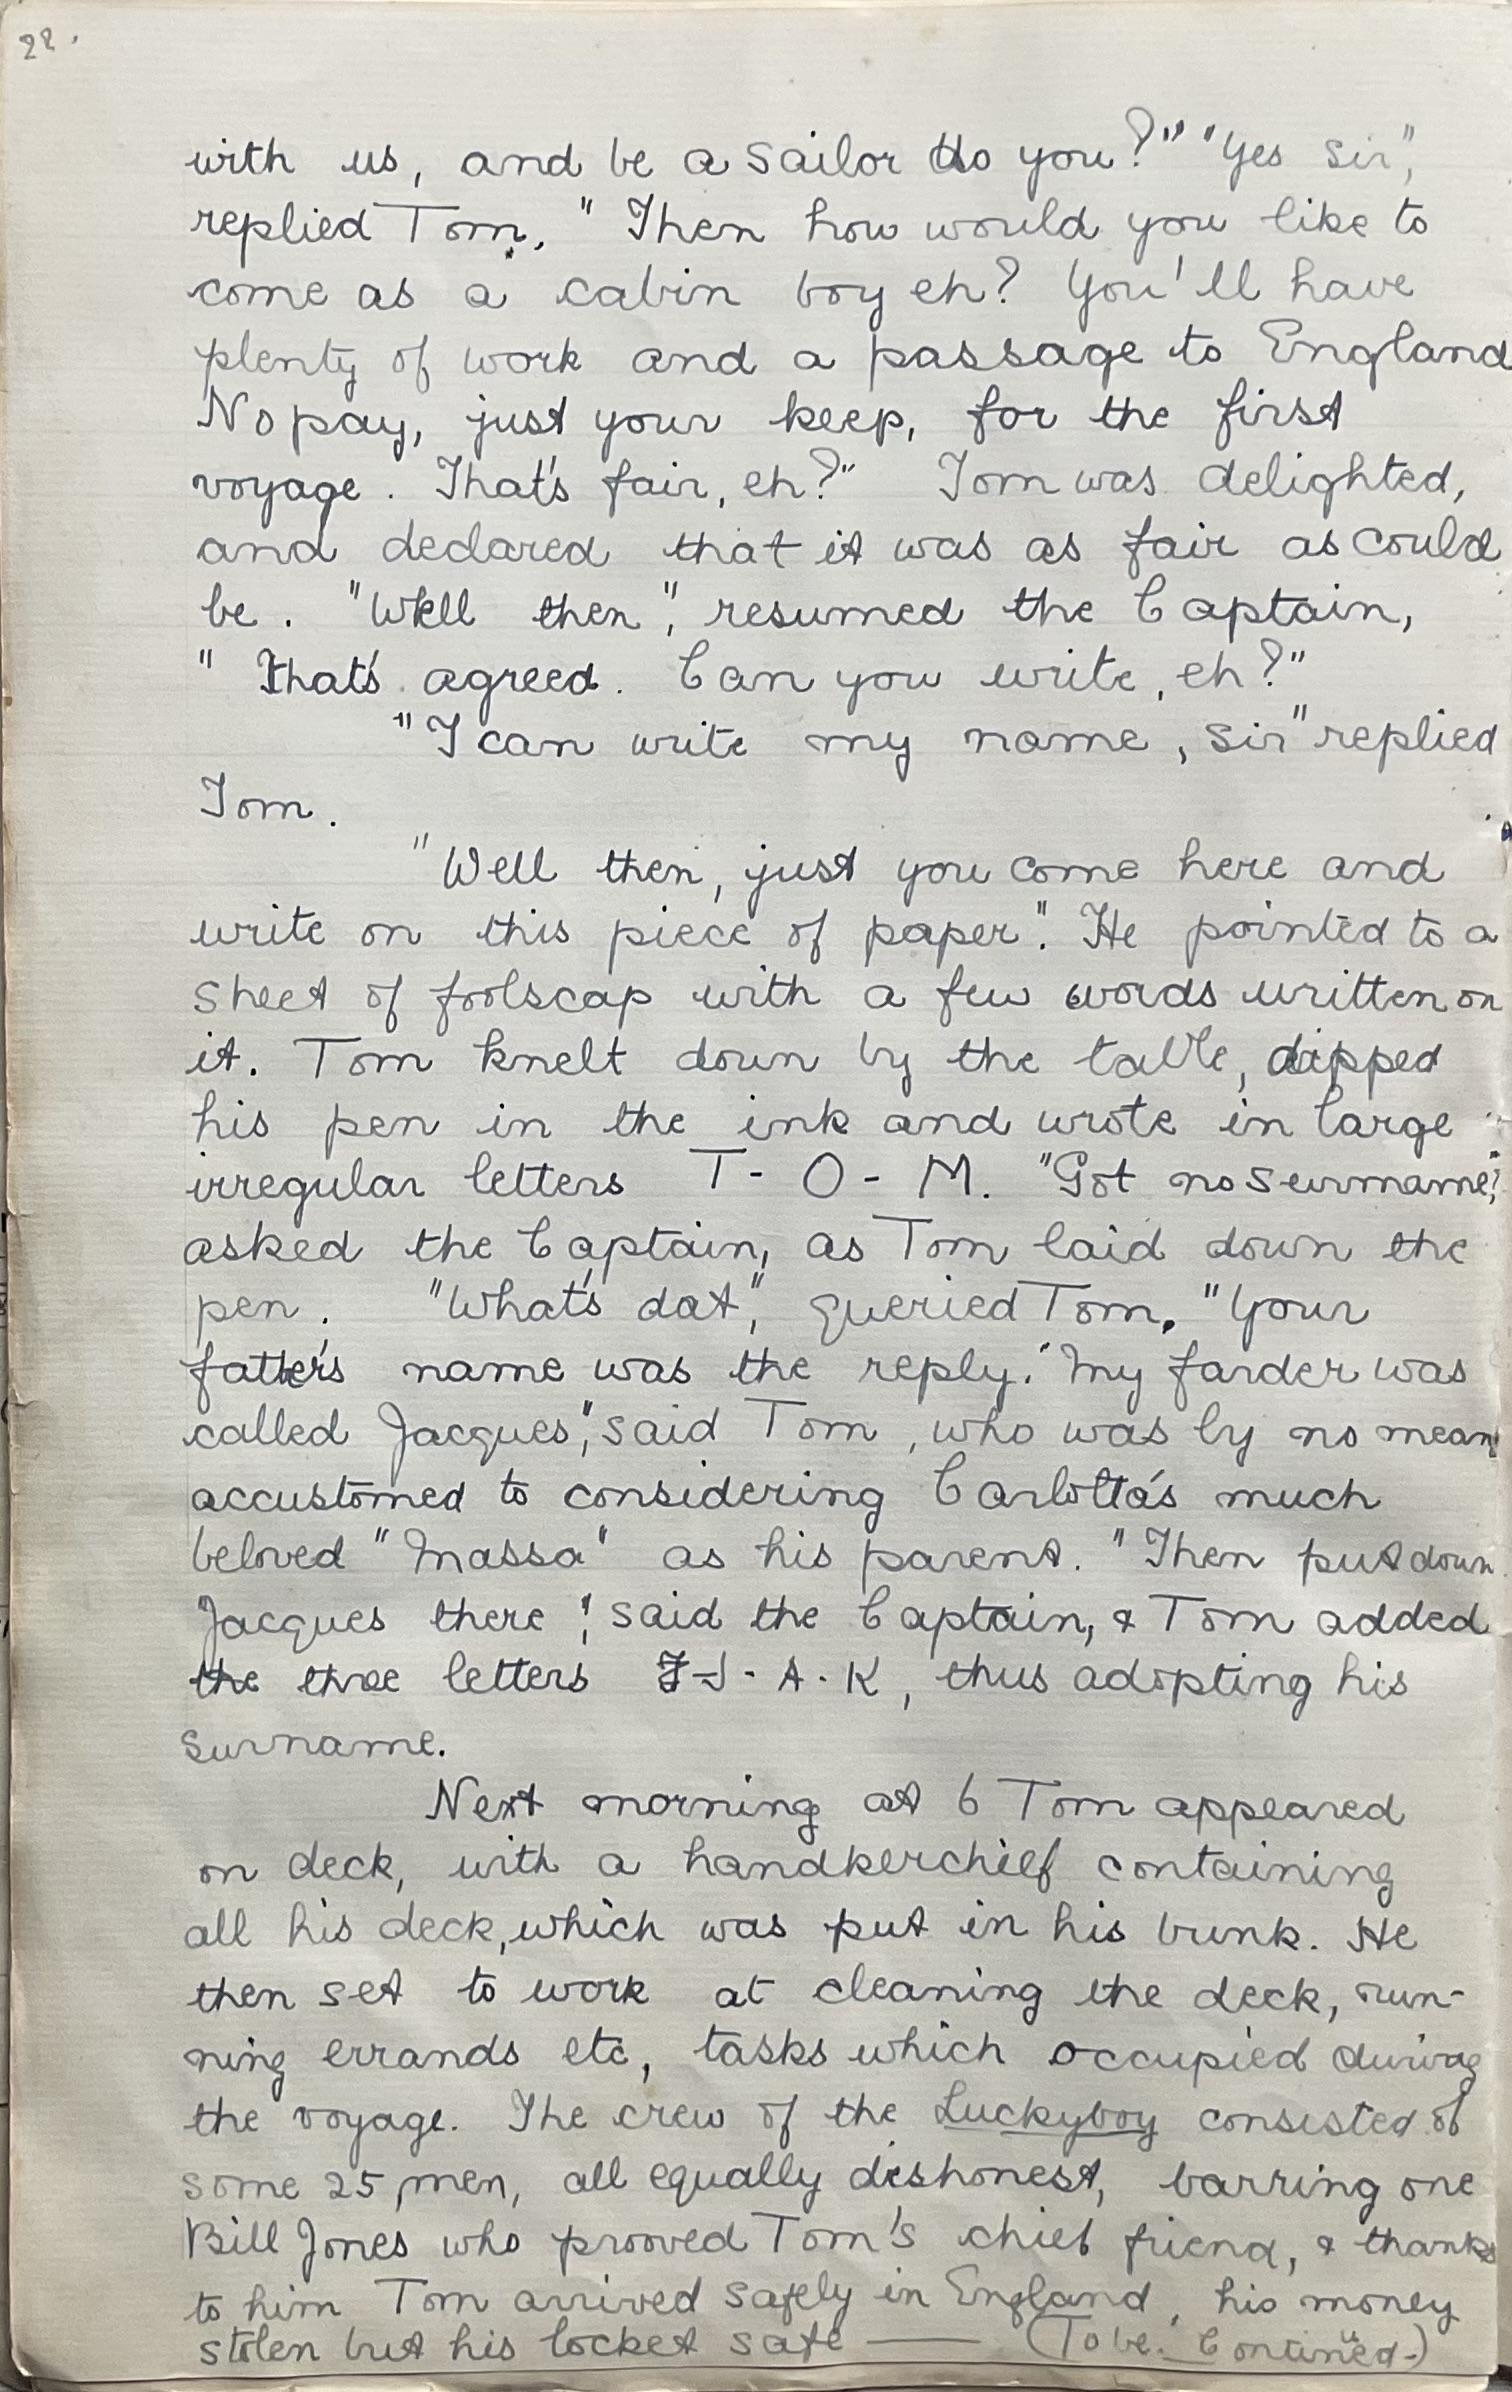 22.
with us, and be a sailor do you?" "Yes sir",
replied Tom. " Then how would you like to
come as a cabin boy eh? You'll have
plenty of work and a passage to England
No pay, just your keep, for the first
voyage. That's fair, eh?" Tom was delighted,
and declared that it was as fair as could
be. "Well then", resumed the Captain,
" that's agreed. Can you write, eh?"
"I can write my name, sir" replied
Tom.
"Well then, just you come here and
write on this piece of paper". He pointed to a
sheet of foolscap with a few words written on
it. Tom knelt down by the table, dipped
his pen in the ink and wrote in large
irregular letters T - O - M. "Got no surname?"
asked the Captain, as Tom laid down the
pen. "What's dat", queried Tom. "Your
father's name was the reply. "My farder was
called Jacques", said Tom, who was by no mean
accustomed to considering Carlotta's much
beloved "Massa" as his parent. "Then put down
Jacques there", said the Captain, & Tom added
the three letters J - A - K, thus adopting his
surname.
Next morning at 6 Tom appeared
on deck, with a handkerchief containing
all his deck, which was put in his bunk. He
then set to work at cleaning the deck, run-
ning errands etc, tasks which occupied during
the voyage. The crew of the Luckyboy consisted of
some 25 men, all equally dishonest, barring one
Bill Jones who prooved Tom's chief friend, & thanks
to him Tom arrived safely in England, his money
stolen but his locket safe — (To be. Continued.)